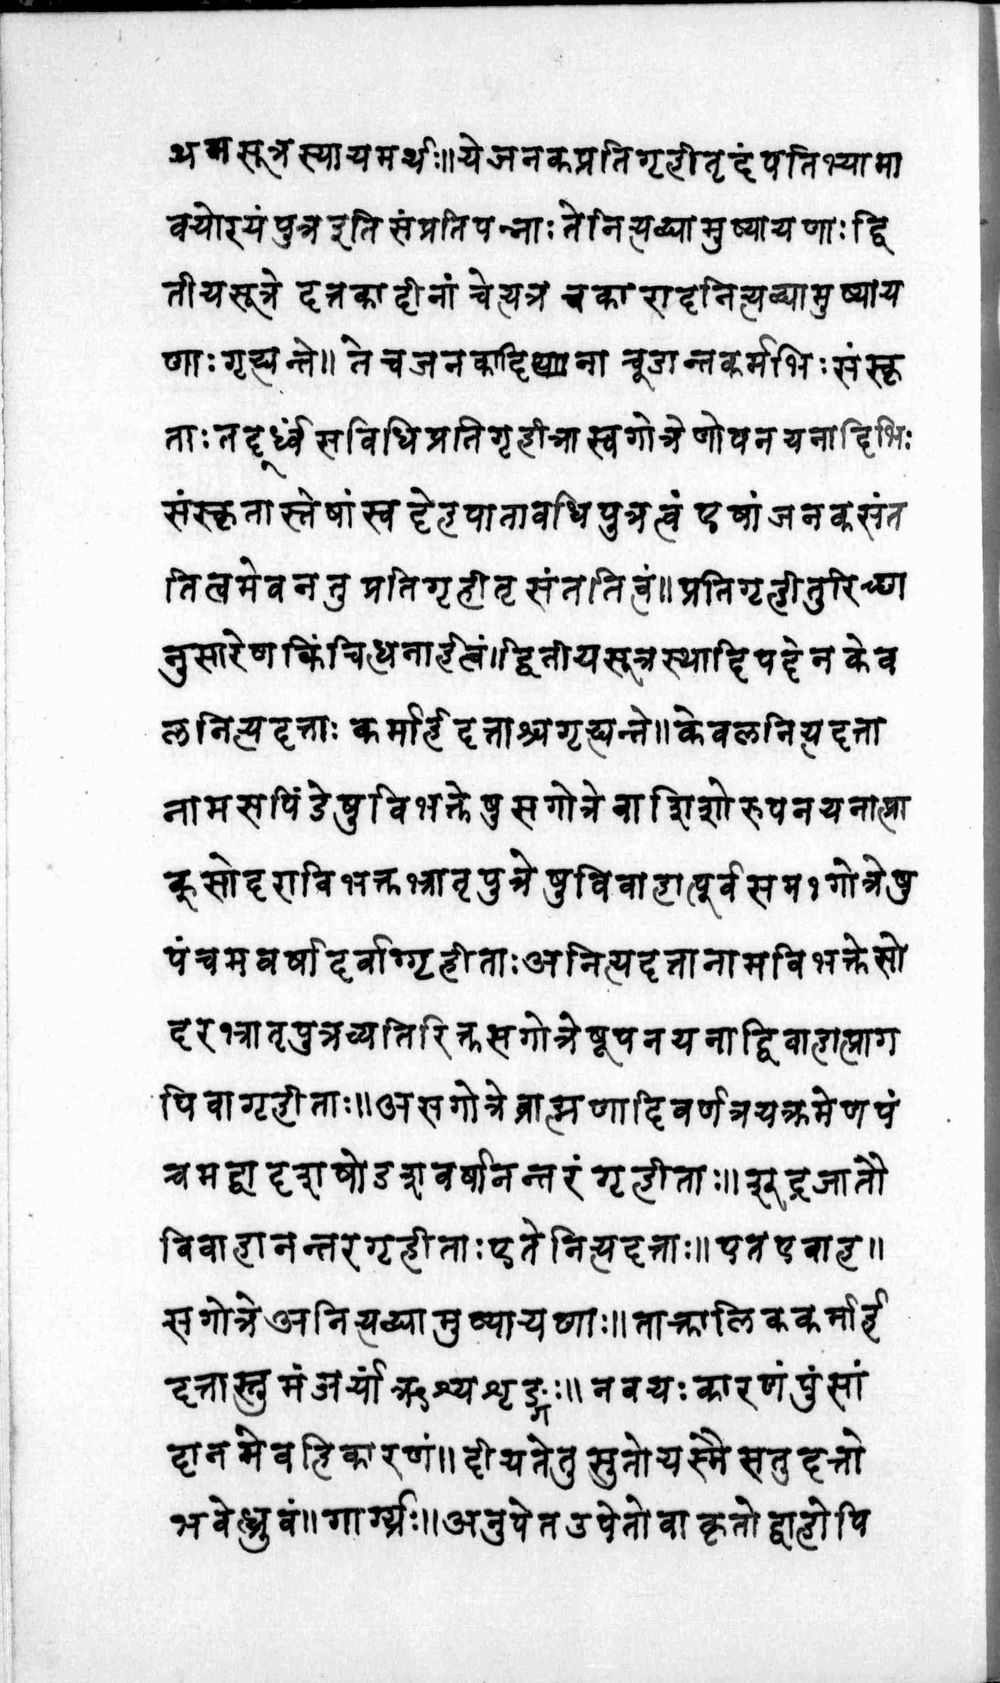 थमसूत्रस्यायमर्थः॥ये जनकप्रतिगृहीतृदंपतिभ्यामा
वयोरयंपुत्र इति संप्रतिपन्नाः तेनित्यद्व्यामुष्यायणाः द्वि
तीयसूत्रे दत्तकादीनां चेत्यत्र चकारादनित्यद्व्यामुष्याय
णाः गृह्यन्ते॥ ते च जनकादिना चूडान्तकर्मभिः संस्कृ
ताः तदूर्ध्वं सविधिप्रतिगृहीत्रा स्वगोत्रेणोपनयनादिभिः
संस्कृतास्तेषां स्व देहपातावधिपुत्रत्वं एषां जनकसंत
तित्वमेव न तु प्रतिगृहीतृ संततित्वं॥ प्रतिगृहीतुरिच्छा
नुसारेण किंचिद्धनार्हत्वं॥ द्वितीयसूत्रस्थादिपदेन केव
लनित्यदत्ताः कर्मार्हदत्ताश्च गृह्यन्ते॥ केवलनित्यदत्ता
नामसपिंडेषुविभक्तेषु सगोत्रे वा शिशोरुपनयनात्प्रा
क् सोदराविभक्तभ्रातृपुत्रेषुविवाहात्पूर्वसमगोत्रेषु
पंचमवर्षादर्वाग्गृहीताः अनित्यदत्तानामविभक्तेसो
दरभ्रातृपुत्रव्यतिरिक्तसगोत्रेषूपनयनाद्विवाहात्प्राग
पि वा गृहीताः॥ असगोत्रे ब्राह्मणादिवर्णत्रयक्रमेण पं
चमद्वादशषोडशवर्षानन्तरं गृहीताः॥ शूद्रजातौ
विवाहानन्तरगृहीताः एते नित्यदत्ताः॥ एत एवाह॥
सगोत्रे अनित्यद्व्यामुष्यायणाः॥ तात्कालिककर्मार्ह
दत्तास्तु मंजर्यां ऋश्यशृङ्गः॥ न वयः कारणं पुंसां
दानमेव हि कारणं॥ दीयते तु सुतो यस्मै स तु दत्तो
भवेध्रुवं॥ गार्ग्यः॥ अनुपेत उपेतो वा कृतोद्वाहोपि